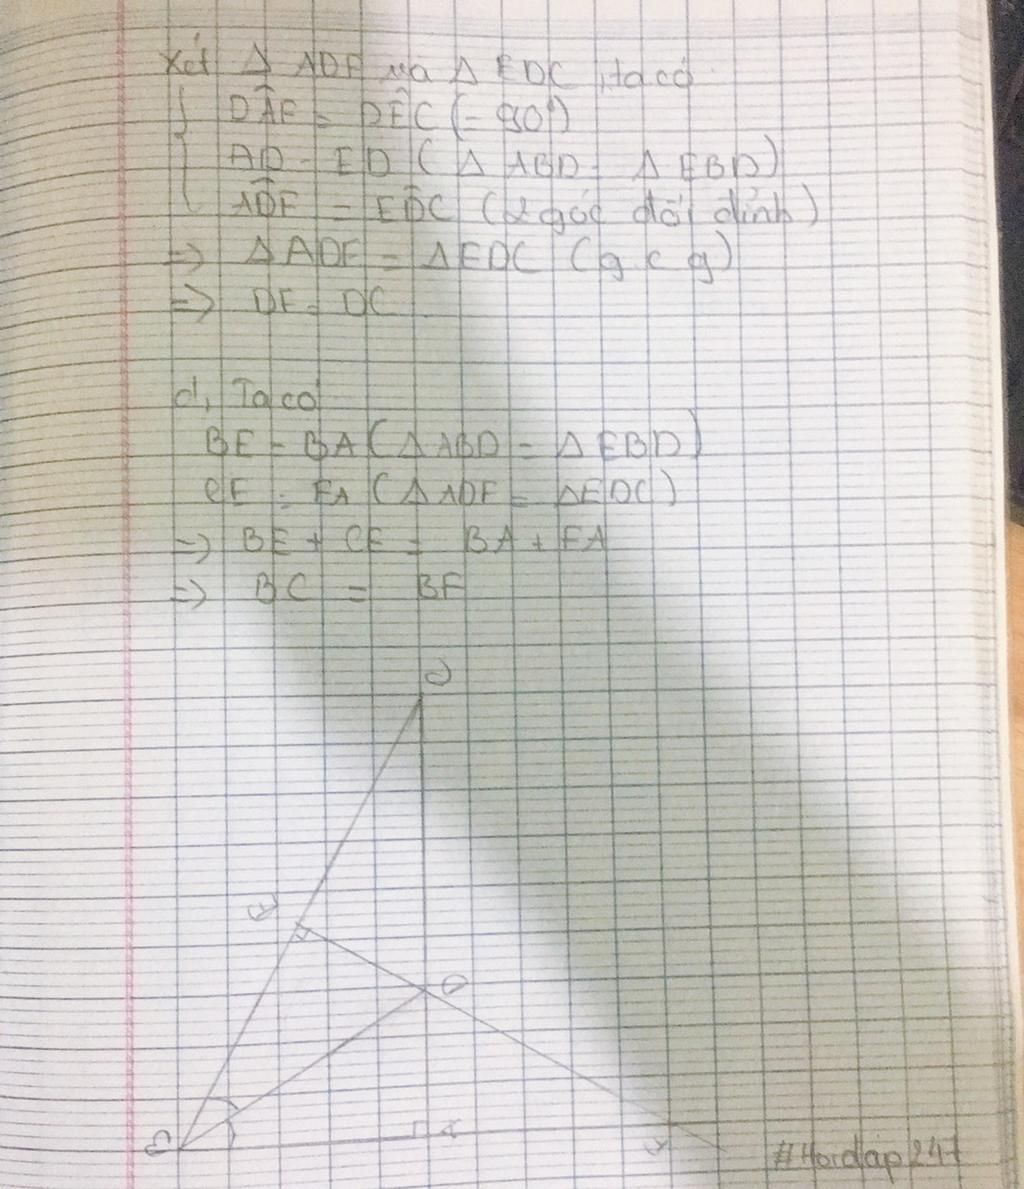 Xét Δ ADF và Δ EDC, ta có
DÂF = DÊC (= 90°)
AD = ED (Δ ABD = Δ EBD)
ADF = EDC (2 góc đối đỉnh)
=> Δ ADF = Δ EDC (g c g)
=> DF = DC
d, Ta có
BE = BA (Δ ABD = Δ EBD)
CE = FA (Δ ADF = Δ EDC)
=> BE + CE = BA + FA
=> BC = BF
C
E
D
B A F
#Hoidap247